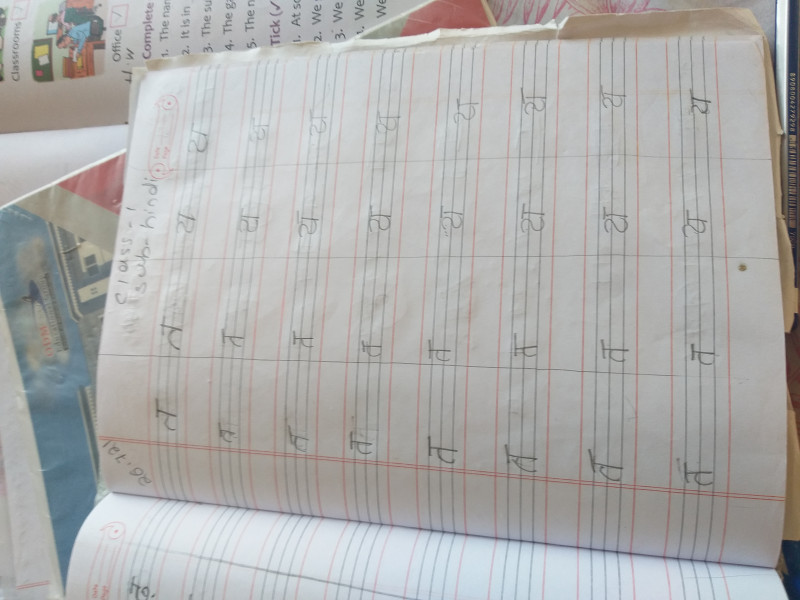 Class-1
Sub-hindi
त त थ थ
त त थ थ
त त थ थ
त त थ थ
त त थ थ
त त थ थ
त त थ थ
त त थ थ
classrooms
Office
Complete
1. The nam
2. It is in
3. The su
4. The g
5. The n
Tick (✓
1. At sc
2. We
3. We
We
We